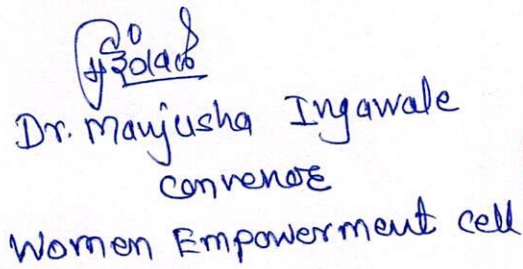 Dr. Manjusha Ingawale
convenor
Women Empowerment cell